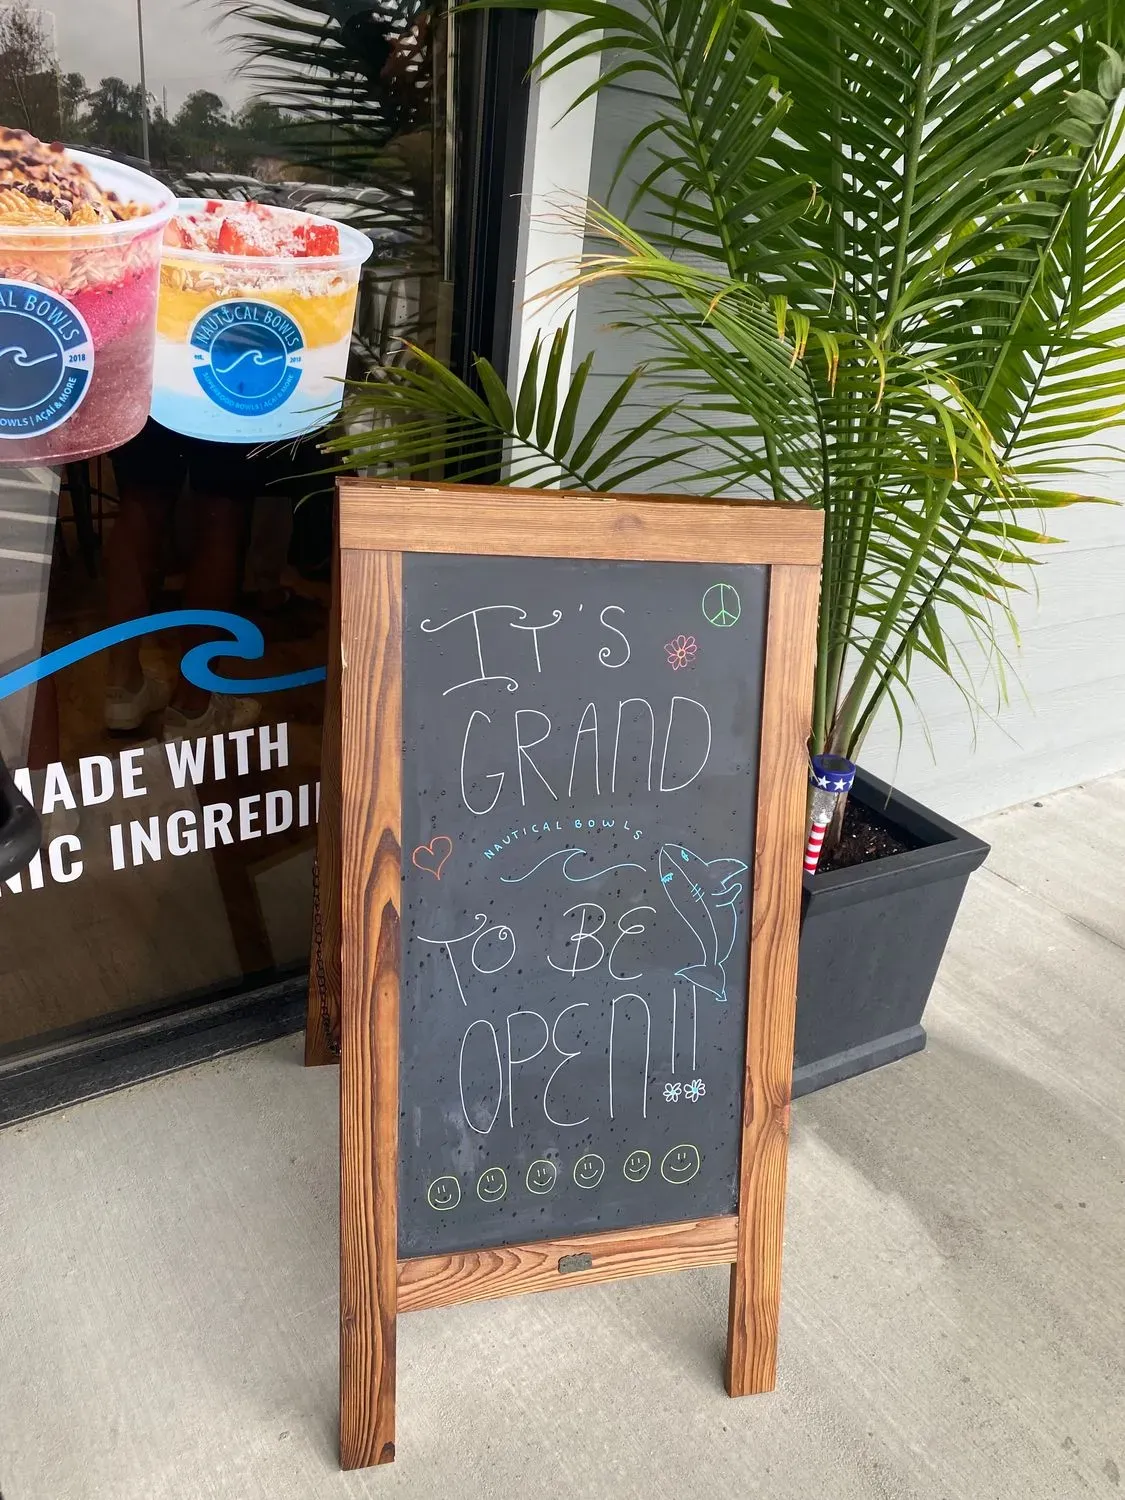 AL BOWLS
2018
OWLS | AÇAÍ & MORE
NAUTICAL BOWLS
est. 2018
SUPERFOOD BOWLS | AÇAÍ & MORE
MADE WITH
NIC INGREDI
IT'S
GRAND
NAUTICAL BOWLS
TO BE
OPEN!!